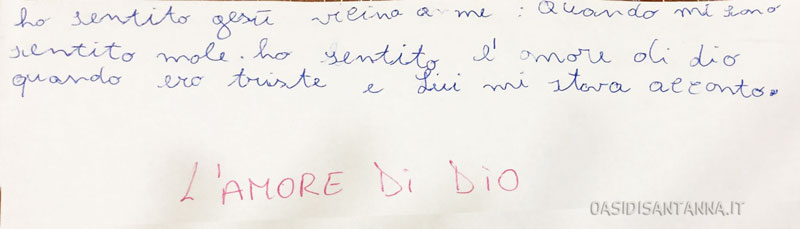 ho sentito gesù vicino a me : Quando mi sono
sentito male. ho sentito l'amore di dio
quando ero triste e Lui mi stava accanto.
L'AMORE Di DiO
OASIDISANTANNA.IT